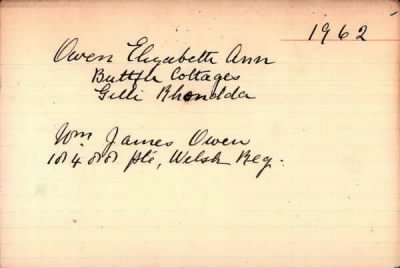 1962
Owen Elizabeth Ann
Cottages
Gelli Rhondda
Wm. James Owen
Pte, Welsh Reg.